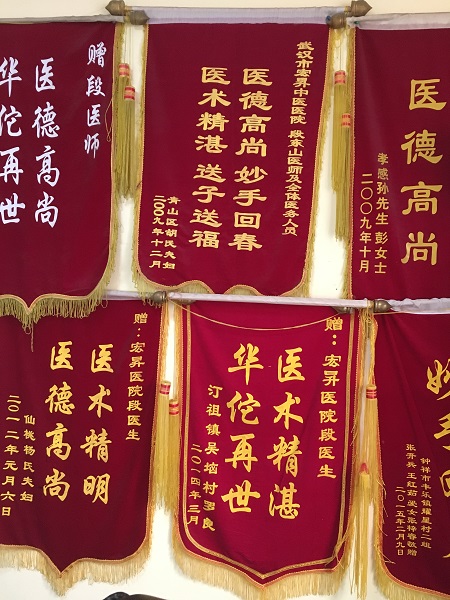 赠段医师
医德高尚
华佗再世
武汉市宏昇中医医院 段东山医师及全体医务人员
医德高尚 妙手回春
医术精湛 送子送福
青山区胡氏夫妇
二00九年十二月
医德高尚
孝感孙先生 彭女士
二00九年十月
赠：宏昇医院段医生
医术精明
医德高尚
仙桃杨氏夫妇
二0一二年元月六日
赠：宏昇医院段医生
医术精湛
华佗再世
汀祖镇吴垴村
二0一四年三月
妙手
钟祥市丰乐镇耀星村二组
二0一五年二月九日